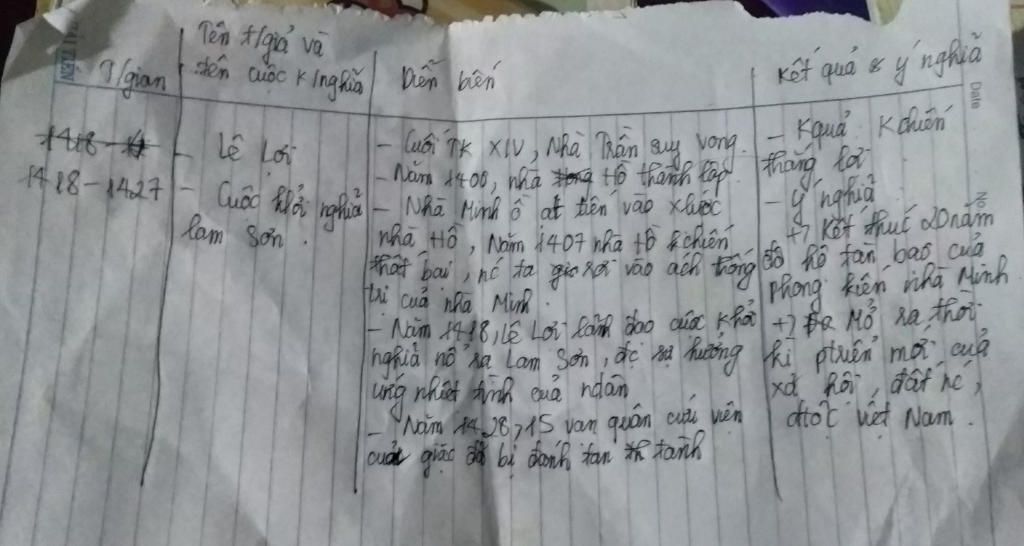 Tên t/giả và
T/gian
tên cuộc k/nghĩa
Diễn biến
Kết quả & ý nghĩa
Date
No
1418 - 14
1418 - 1427
- Lê Lợi
- Cuộc khởi nghĩa
lam Sơn.
- Cuối TK XIV, Nhà Trần suy vong.
- Năm 1400, nhà Hồ thành lập
- Nhà Minh ồ ạt tiến vào
nhà Hồ, Năm 1407 nhà Hồ kchiến
thất bại, nc ta rơi vào ách thống
trị của nhà Minh.
- Năm 1418, Lê Lợi lãnh đạo cuộc khởi
nghĩa nổ ra Lam Sơn, đc hưởng
ứng nhiệt tình của ndân
- Năm 1428, 15 vạn quân cứu viện
của giặc bị đánh tan tành
- Kquả: Kchiến
thắng lợi
- ý nghĩa
+) Kết thúc 20 năm
đô hộ tàn bạo của
phong kiến nhà Minh
+) Mở ra thời
kì ptriển mới của
xã hội, đất nc,
dtộc việt Nam.